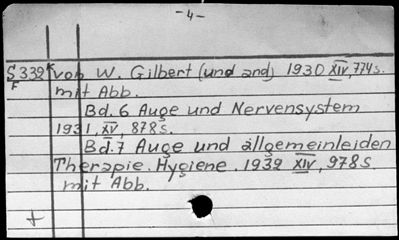 -4-
S 339 von W. Gilbert (und and) 1930 XIV, 774 s.
F
mit Abb.
Bd. 6 Auge und Nervensystem
1931, XV, 878 s.
Bd. 7 Auge und allgemeinleiden
Therapie. Hygiene. 1932 XIV, 978 s
mit Abb.
+